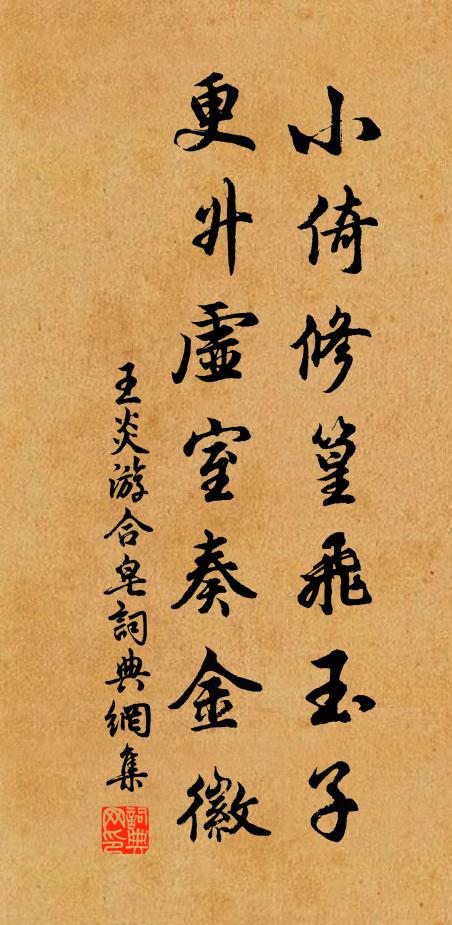 小倚修篁飛玉子
更升虛室奏金徽
王炎游合皂詞典網集
詞典网印